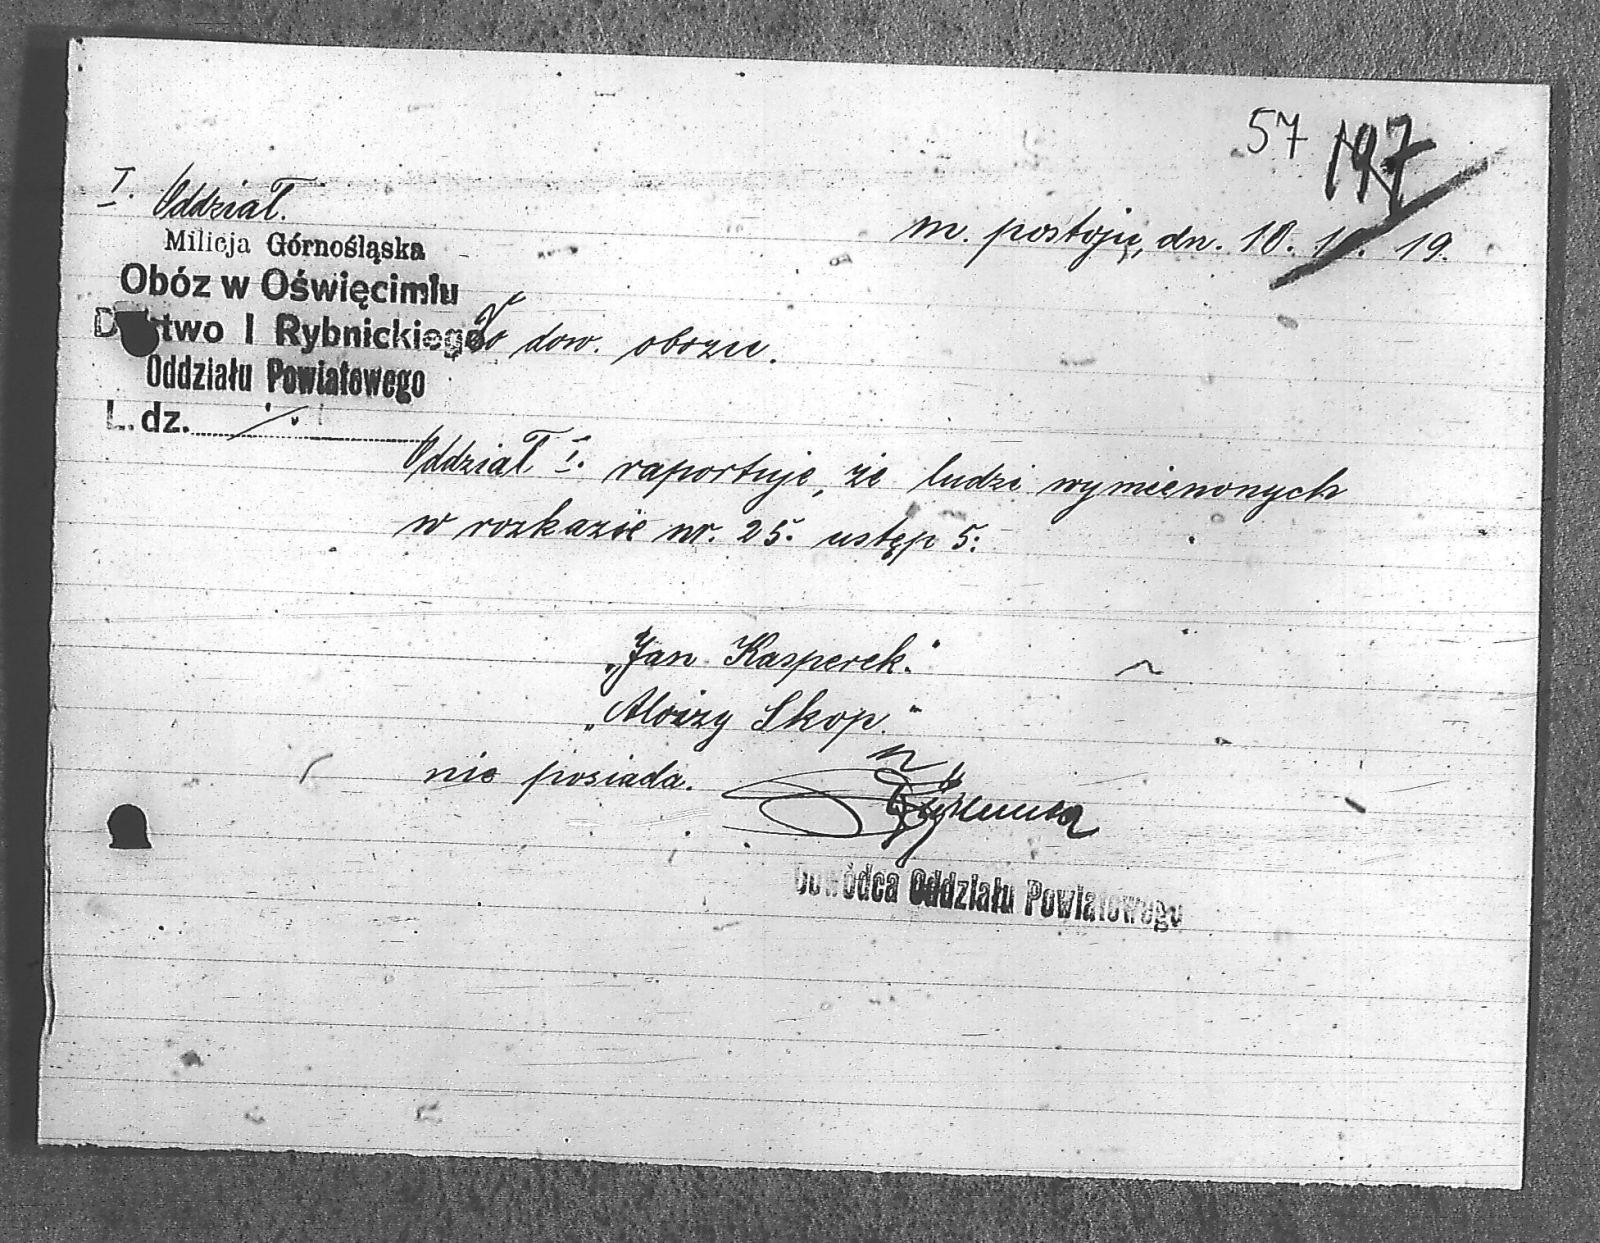 57 197
I. Oddział.
m. postoju, dn. 10. 10. 19.
Milicja Górnośląska
Obóz w Oświęcimiu
D stwo I Rybnickiego
Oddziału Powiatowego
L. dz.
Do dow. obozu.
Oddział I. raportuje, że ludzi wymienonych
w rozkazie nr. 25. ustęp 5.
„Jan Kasperek."
„Aloizy Skop."
nie posiada.
Dowódca Oddziału Powiatowego